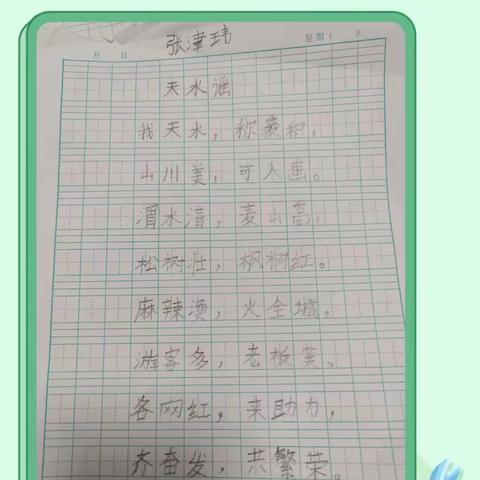 张津玮
月 日 星期( )
天水谣
我天水，称羲和，
山川美，可入画。
渭水清，麦山高，
松树壮，枫树红。
麻辣烫，火全城，
游客多，老板笑。
各网红，来助力，
齐奋发，共繁荣。